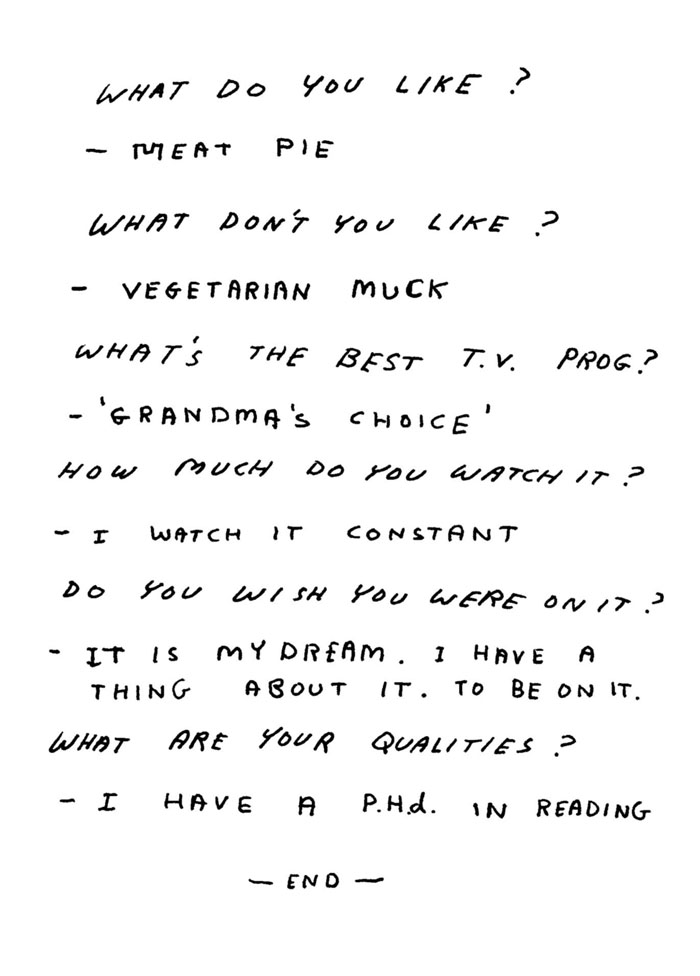 WHAT DO YOU LIKE ?
— MEAT PIE
WHAT DON'T YOU LIKE ?
- VEGETARIAN MUCK
WHAT'S THE BEST T.V. PROG?
- 'GRANDMA'S CHOICE'
HOW MUCH DO YOU WATCH IT ?
- I WATCH IT CONSTANT
DO YOU WISH YOU WERE ON IT ?
- IT IS MY DREAM. I HAVE A
THING ABOUT IT. TO BE ON IT.
WHAT ARE YOUR QUALITIES ?
- I HAVE A P.H.d. IN READING
— END —